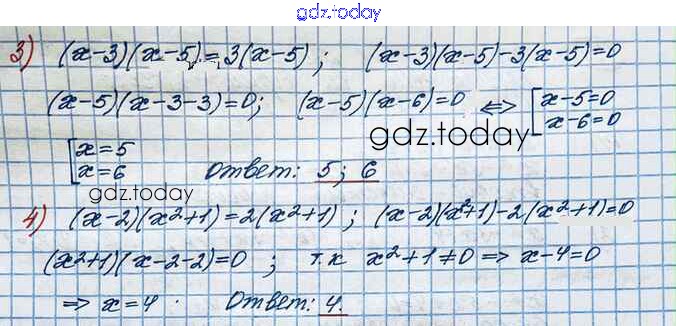 gdz.today
3) (x-3)(x-5)=3(x-5); (x-3)(x-5)-3(x-5)=0
(x-5)(x-3-3)=0; (x-5)(x-6)=0 ⟺ [x-5=0
x-6=0
gdz.today
[x=5
x=6 Ответ: 5; 6
gdz.today
4) (x-2)(x²+1)=2(x²+1); (x-2)(x²+1)-2(x²+1)=0
(x²+1)(x-2-2)=0; т.к x²+1≠0 ⟹ x-4=0
⟹ x=4. Ответ: 4.